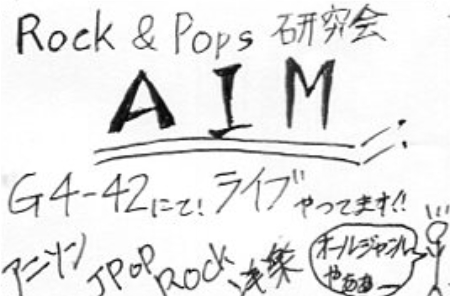 Rock & Pops 研究会
AIM
G4-42にて! ライブやってます!!
アニソン JPOP ROCK 洋楽
オールジャンル
やぁぁー